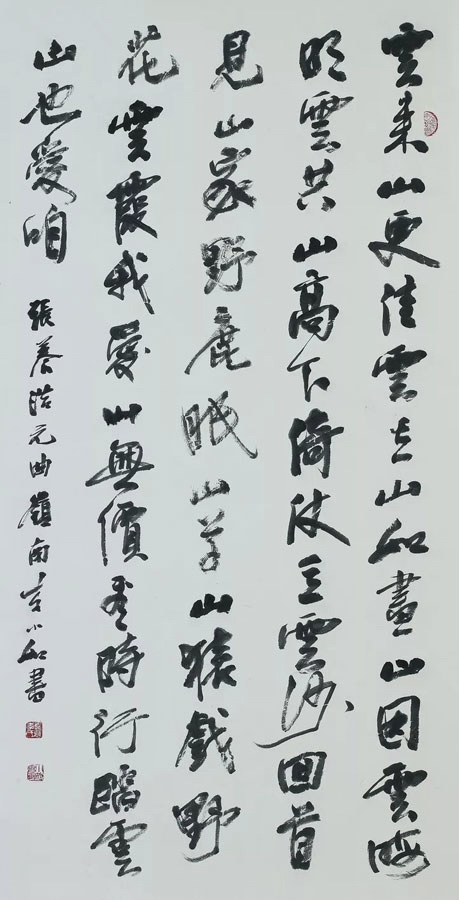 雲来山更佳雲去山如畫山因雲晦
明雲共山高下倚仗立雲沙回首
見山家野鹿眠山草山猿戲野
花雲霞我愛山無價看時行踏雲
山也愛咱
張養浩元曲嶺南小如書